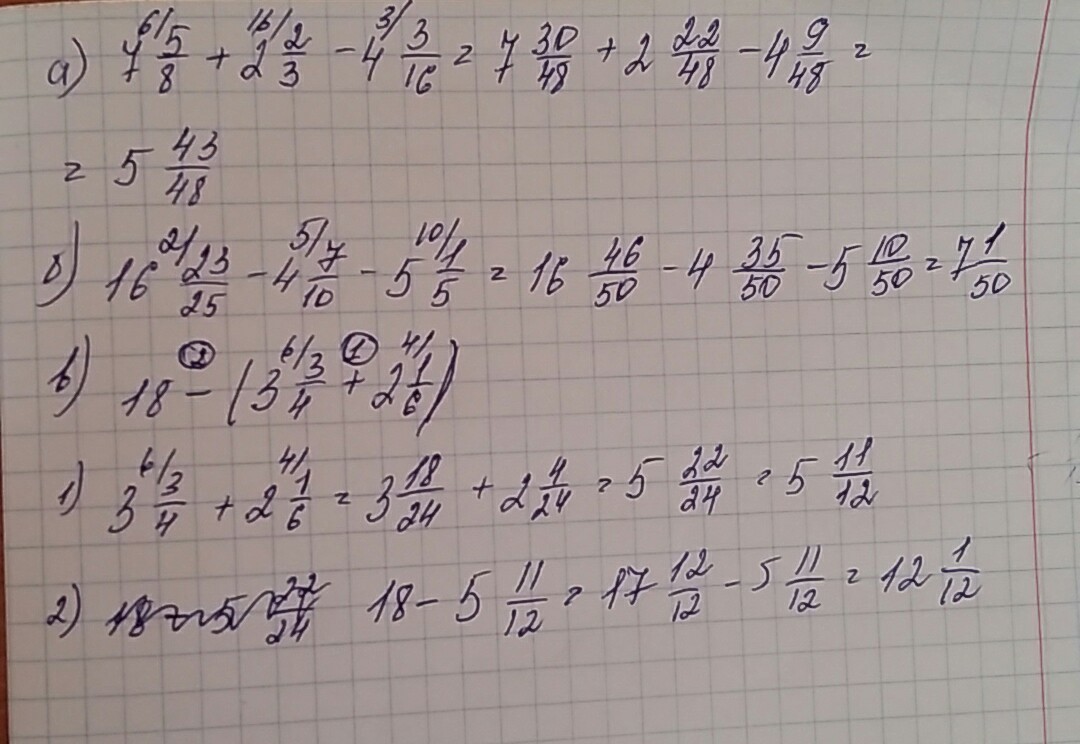 а) 7 6/ 5/8 + 2 16/ 2/3 - 4 3/ 3/16 = 7 30/48 + 2 22/48 - 4 9/48 =
= 5 43/48
б) 16 2/ 23/25 - 4 5/ 7/10 - 5 10/ 1/5 = 16 46/50 - 4 35/50 - 5 10/50 = 7 1/50
в) 18 - (3 6/ 3/4 + 2 4/ 1/6)
1) 3 6/ 3/4 + 2 4/ 1/6 = 3 18/24 + 2 4/24 = 5 22/24 = 5 11/12
2) 18 - 5 22/24 18 - 5 11/12 = 17 12/12 - 5 11/12 = 12 1/12